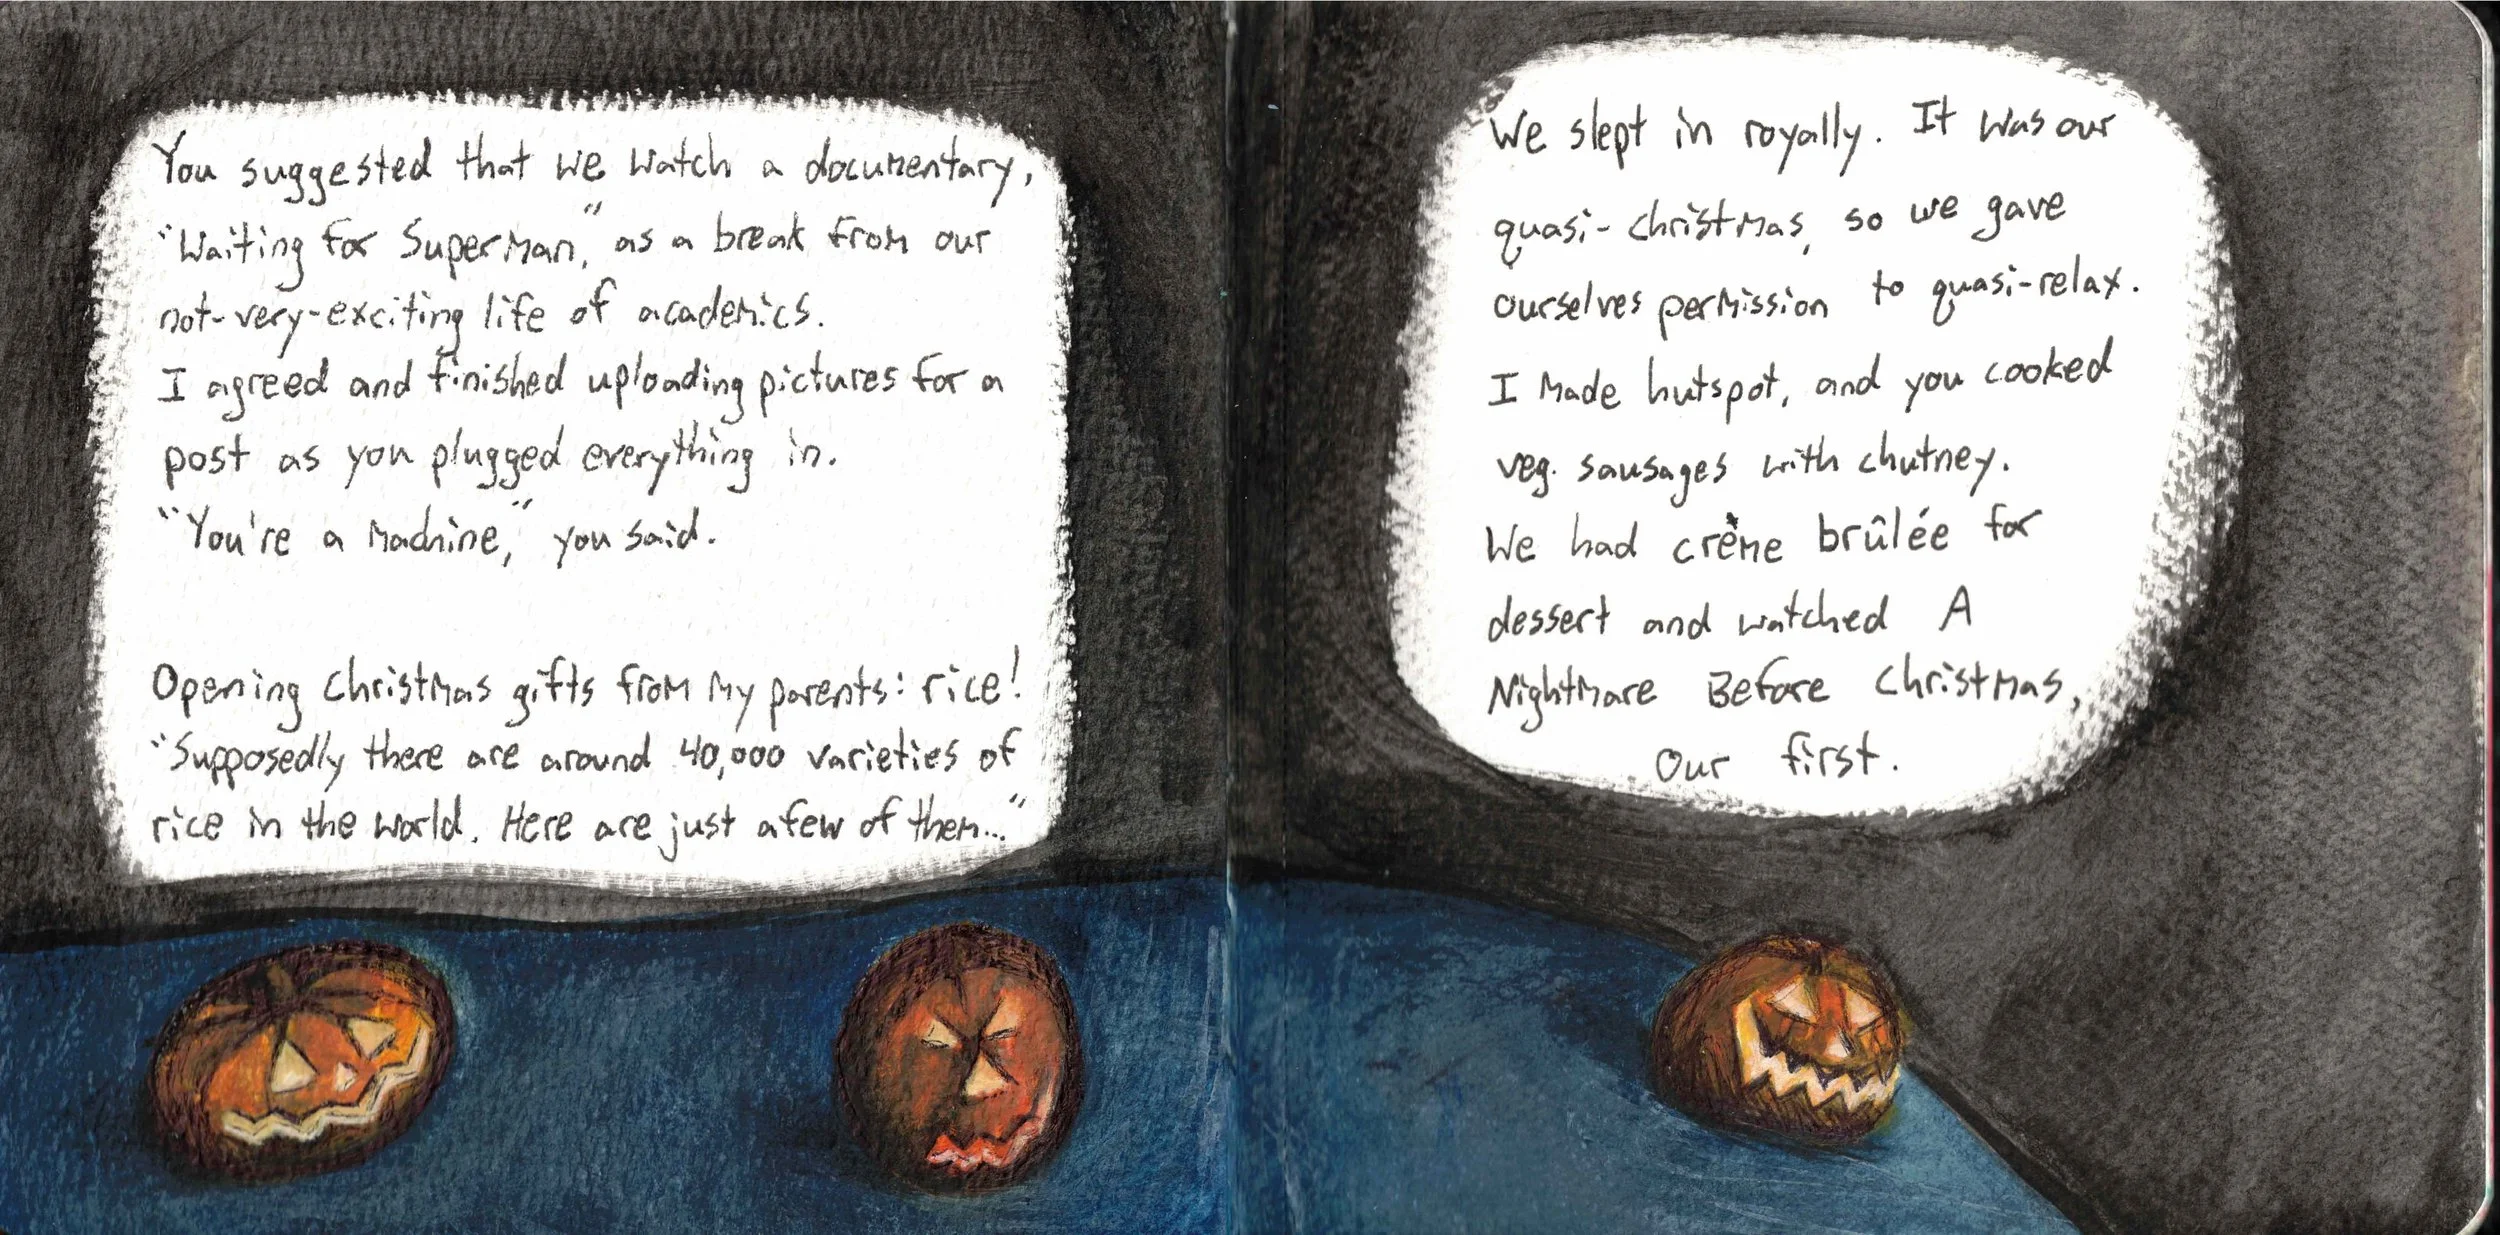 You suggested that we watch a documentary,
"Waiting for Superman," as a break from our
not-very-exciting life of academics.
I agreed and finished uploading pictures for a
post as you plugged everything in.
"You're a machine," you said.
Opening Christmas gifts from my parents: rice!
"Supposedly there are around 40,000 varieties of
rice in the world. Here are just a few of them..."
We slept in royally. It was our
quasi-christmas, so we gave
ourselves permission to quasi-relax.
I made hutspot, and you cooked
veg. sausages with chutney.
We had crème brûlée for
dessert and watched A
Nightmare Before Christmas,
our first.